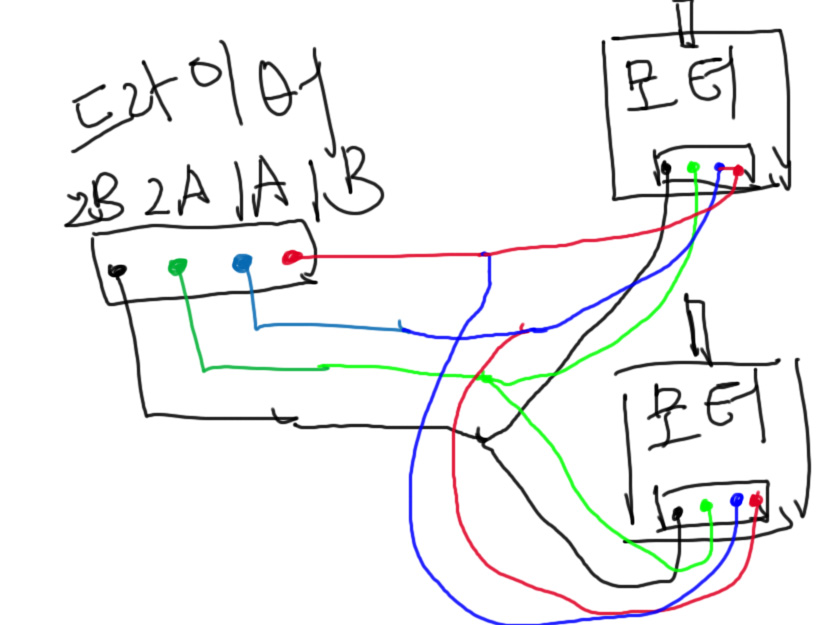 드라이버
2B 2A 1A 1B
모터
모터